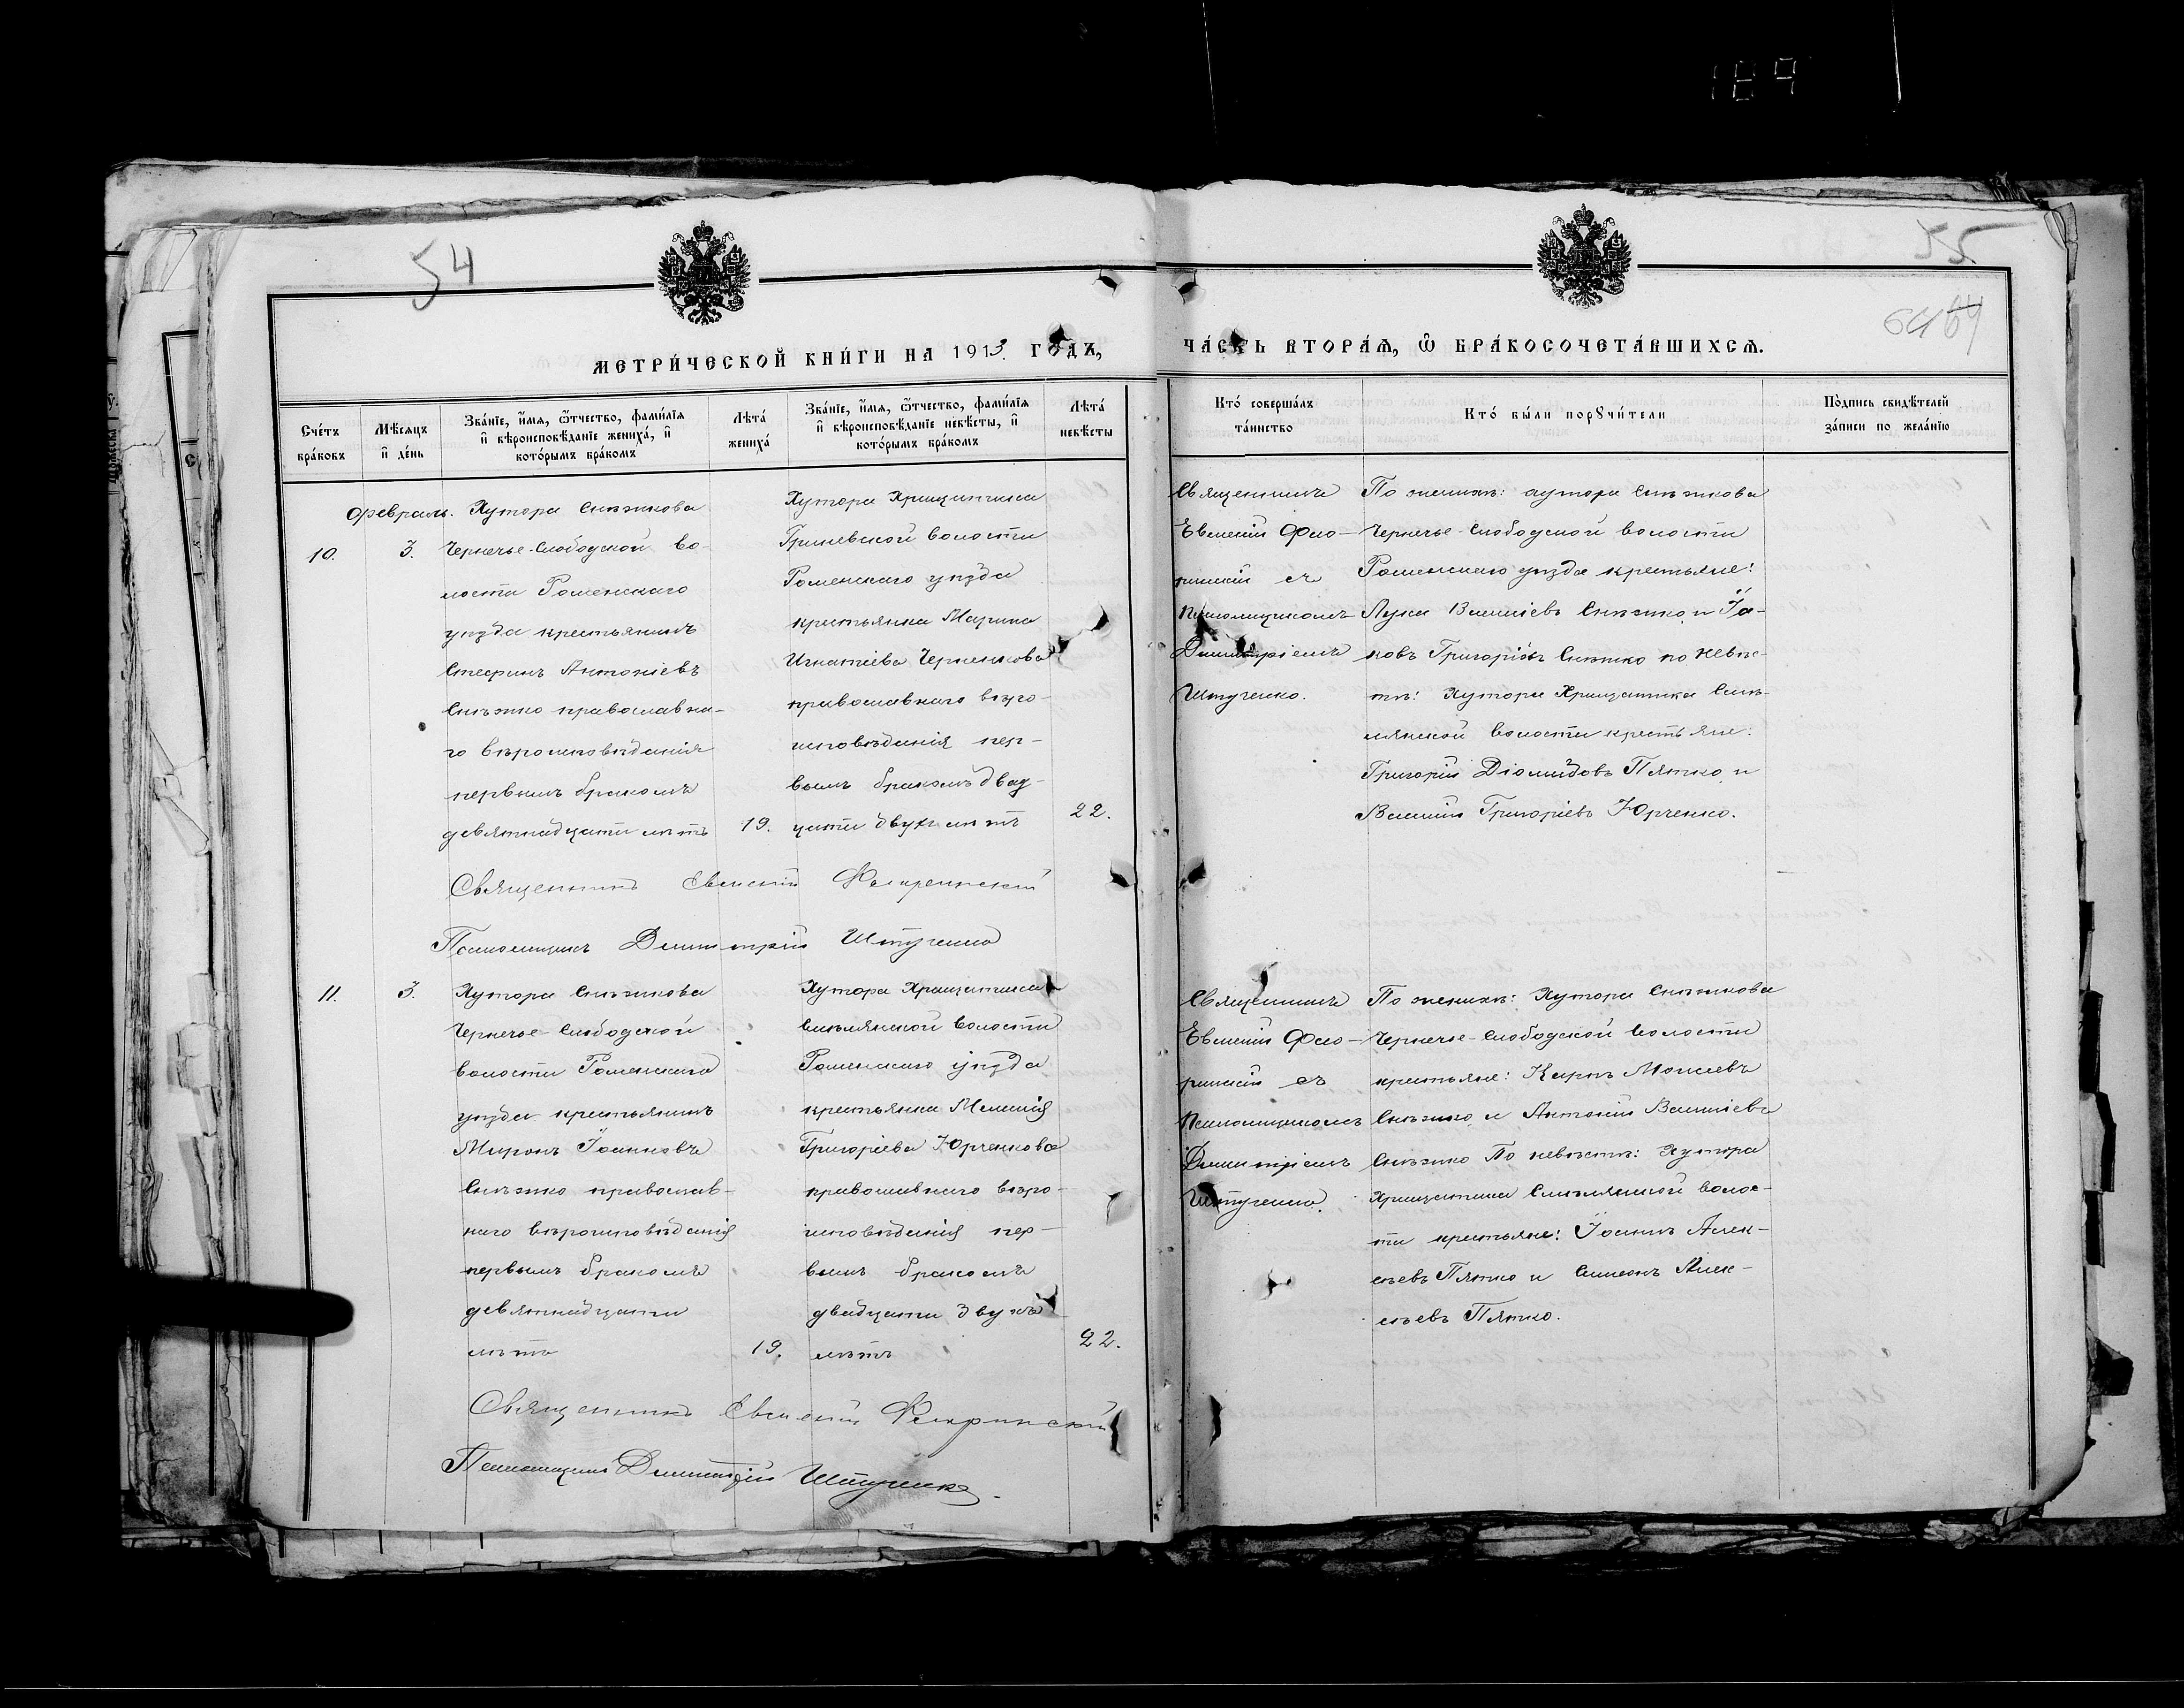 189
54
55
64 64
МЕТРИ́ЧЕСКОЙ КНИ́ГИ НА 1913 ГО́ДЪ,
ЧА́СТЬ ВТОРА́Я, Ѡ БРА́КОСОЧЕТА́ВШИХСЯ.
Сче́тъ бра́ковъ
Мѣ́сяцъ и҆ де́нь
Зва́нїе, и҆́мя, ѻ҆́тчество, фами́лїя
и҆ вѣроисповѣ́данїе жениха́, и҆
кото́рымъ бра́комъ
Лѣта́ жениха́
Зва́нїе, и҆́мя, ѻ҆́тчество, фами́лїя
и҆ вѣроисповѣ́данїе невѣ́сты, и҆
кото́рымъ бра́комъ
Лѣта́ невѣ́сты
Кто́ соверша́лъ та́инство
Кто́ бы́ли порꙋчи́тели
По́дпись свидѣ́телей за́писи по жела́нїю
10.
Февраль.
3.
Хутора Снѣжкова
Чернечье-Слободской во-
лости Роменскаго
уѣзда крестьянинъ
Стефанъ Антоніевъ
Снѣжко православна-
го вѣроисповѣданія
первымъ бракомъ
девятнадцати лѣтъ
19.
Хутора Хрищатика
Гриневской волости
Роменскаго уѣзда
крестьянка Марина
Игнатіева Черненкова
православнаго вѣро-
исповѣданія пер-
вымъ бракомъ двад-
цати двухъ лѣтъ
22.
Священникъ
Евгеній Фло-
ринскій съ
Псаломщикомъ
Димитріемъ
Штученко.
По женихѣ: хутора Снѣжкова
Чернечье-Слободской волости
Роменскаго уѣзда крестьяне:
Лука Василіевъ Снѣжко, и Іа-
ковъ Григоріевъ Снѣжко по невѣс-
тѣ: Хутора Хрищатика Смѣ-
лянской волости крестьяне:
Григорій Діомидовъ Пятко, и
Василій Григоріевъ Юрченко.
Священникъ Евгеній Флоринскій
Псаломщикъ Димитрій Штученко
11.
3.
Хутора Снѣжкова
Чернечье-Слободской
волости Роменскаго
уѣзда крестьянинъ
Миронъ Іоанновъ
Снѣжко православ-
наго вѣроисповѣданія
первымъ бракомъ
девятнадцати
лѣтъ
19.
Хутора Хрищатика
Смѣлянской волости
Роменскаго уѣзда
крестьянка Меланія
Григоріева Юрченкова
православнаго вѣро-
исповѣданія пер-
вымъ бракомъ
двадцати двухъ
лѣтъ
22.
Священникъ
Евгеній Фло-
ринскій съ
Псаломщикомъ
Димитріемъ
Штученко.
По женихѣ: Хутора Снѣжкова
Чернечье-Слободской волости
крестьяне: Карпъ Моисеевъ
Снѣжко, и Антоній Василіевъ
Снѣжко По невѣстѣ: Хутора
Хрищатика Смѣлянской волос-
ти крестьяне: Іоаннъ Алек-
сѣевъ Пятко и Симеонъ Алек-
сѣевъ Пятко.
Священникъ Евгеній Флоринскій
Псаломщикъ Димитрій Штученко